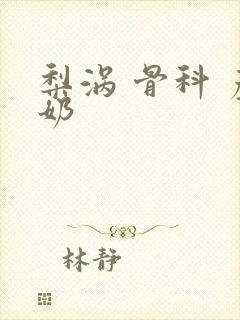 梨涡 骨科
奶
林静